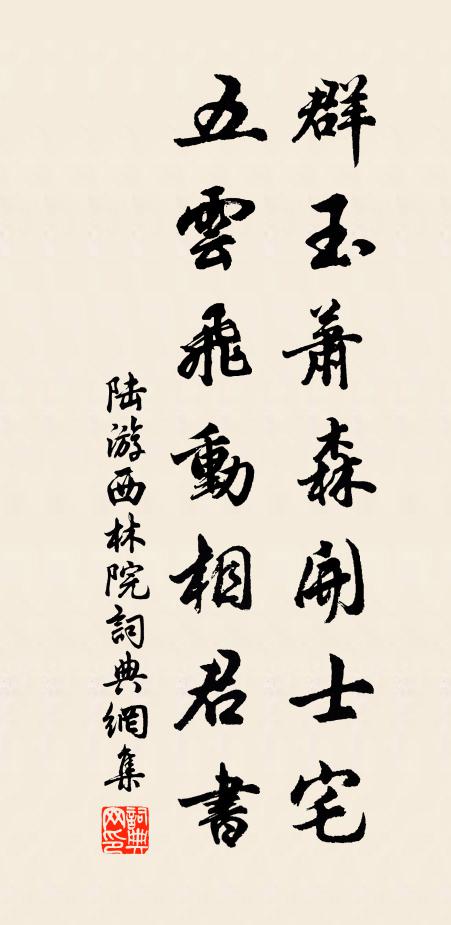 群玉蕭森開士宅
五雲飛動相君書
陆游西林院詞典網集
詞典網印